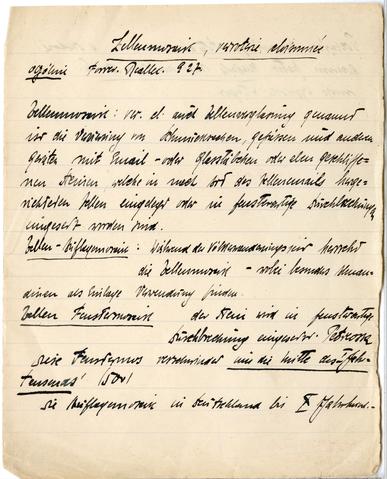 Zellenmosaik, verroterie cloisonnée
ogólnie Forrer. Reallex. 927.
Zellenmosaik: ver. cl. auch Zellenverglasung genannt
ist die Verzierung von Schmucksachen, gefässen und anderen
geräten mit Email - oder Glasstückchen oder eben geschliffe-
nen Steinen, welche in nach Art des Zellenemails herge-
richteten Zellen eingelegt oder in fensterartige Durchbrechungen
eingesetzt worden sind.
Zellen-Auflagemosaik: Während der Völkerwanderungszeit herrscht
die Zellenmosaik - wobei besonders Alman-
dinen als Einlage Verwendung finden.
Zellen Fenstermosaik der Stein wird in fensterartige
Durchbrechung eingesetzt. Petrossa
diese Fenstermos verschwindet um die Mitte des Jahr-
tausends (500)
die Auflagemosaik in Deutschland bis X Jahrhund.-